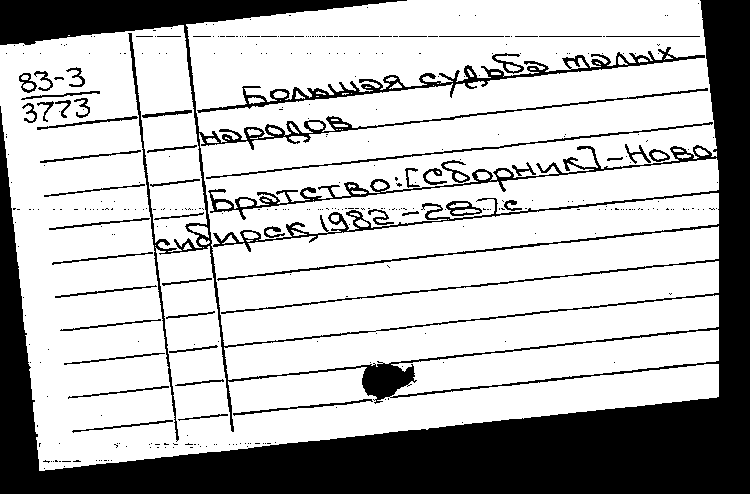 83-3
3773
Большая судьба малых
народов
Братство: [сборник].-Ново-
сибирск, 1982.-287с.